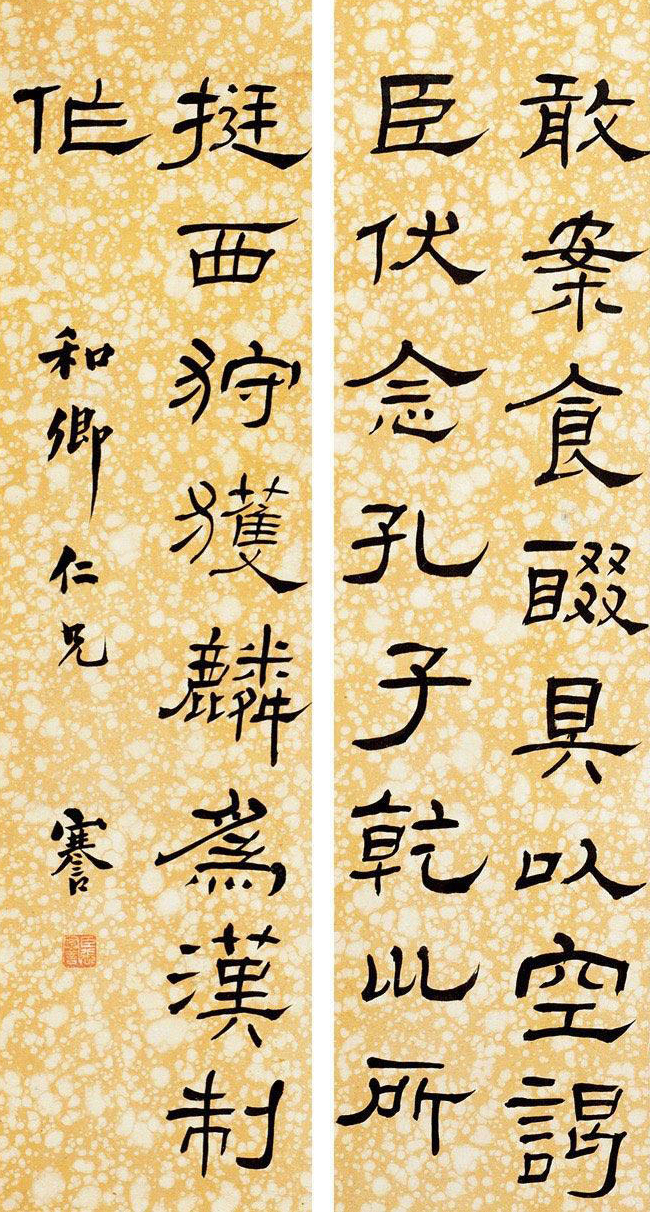 敢案食醊具以空謁
臣伏念孔子乾巛所
挺西狩獲麟為漢制
作
和卿仁兄
謇